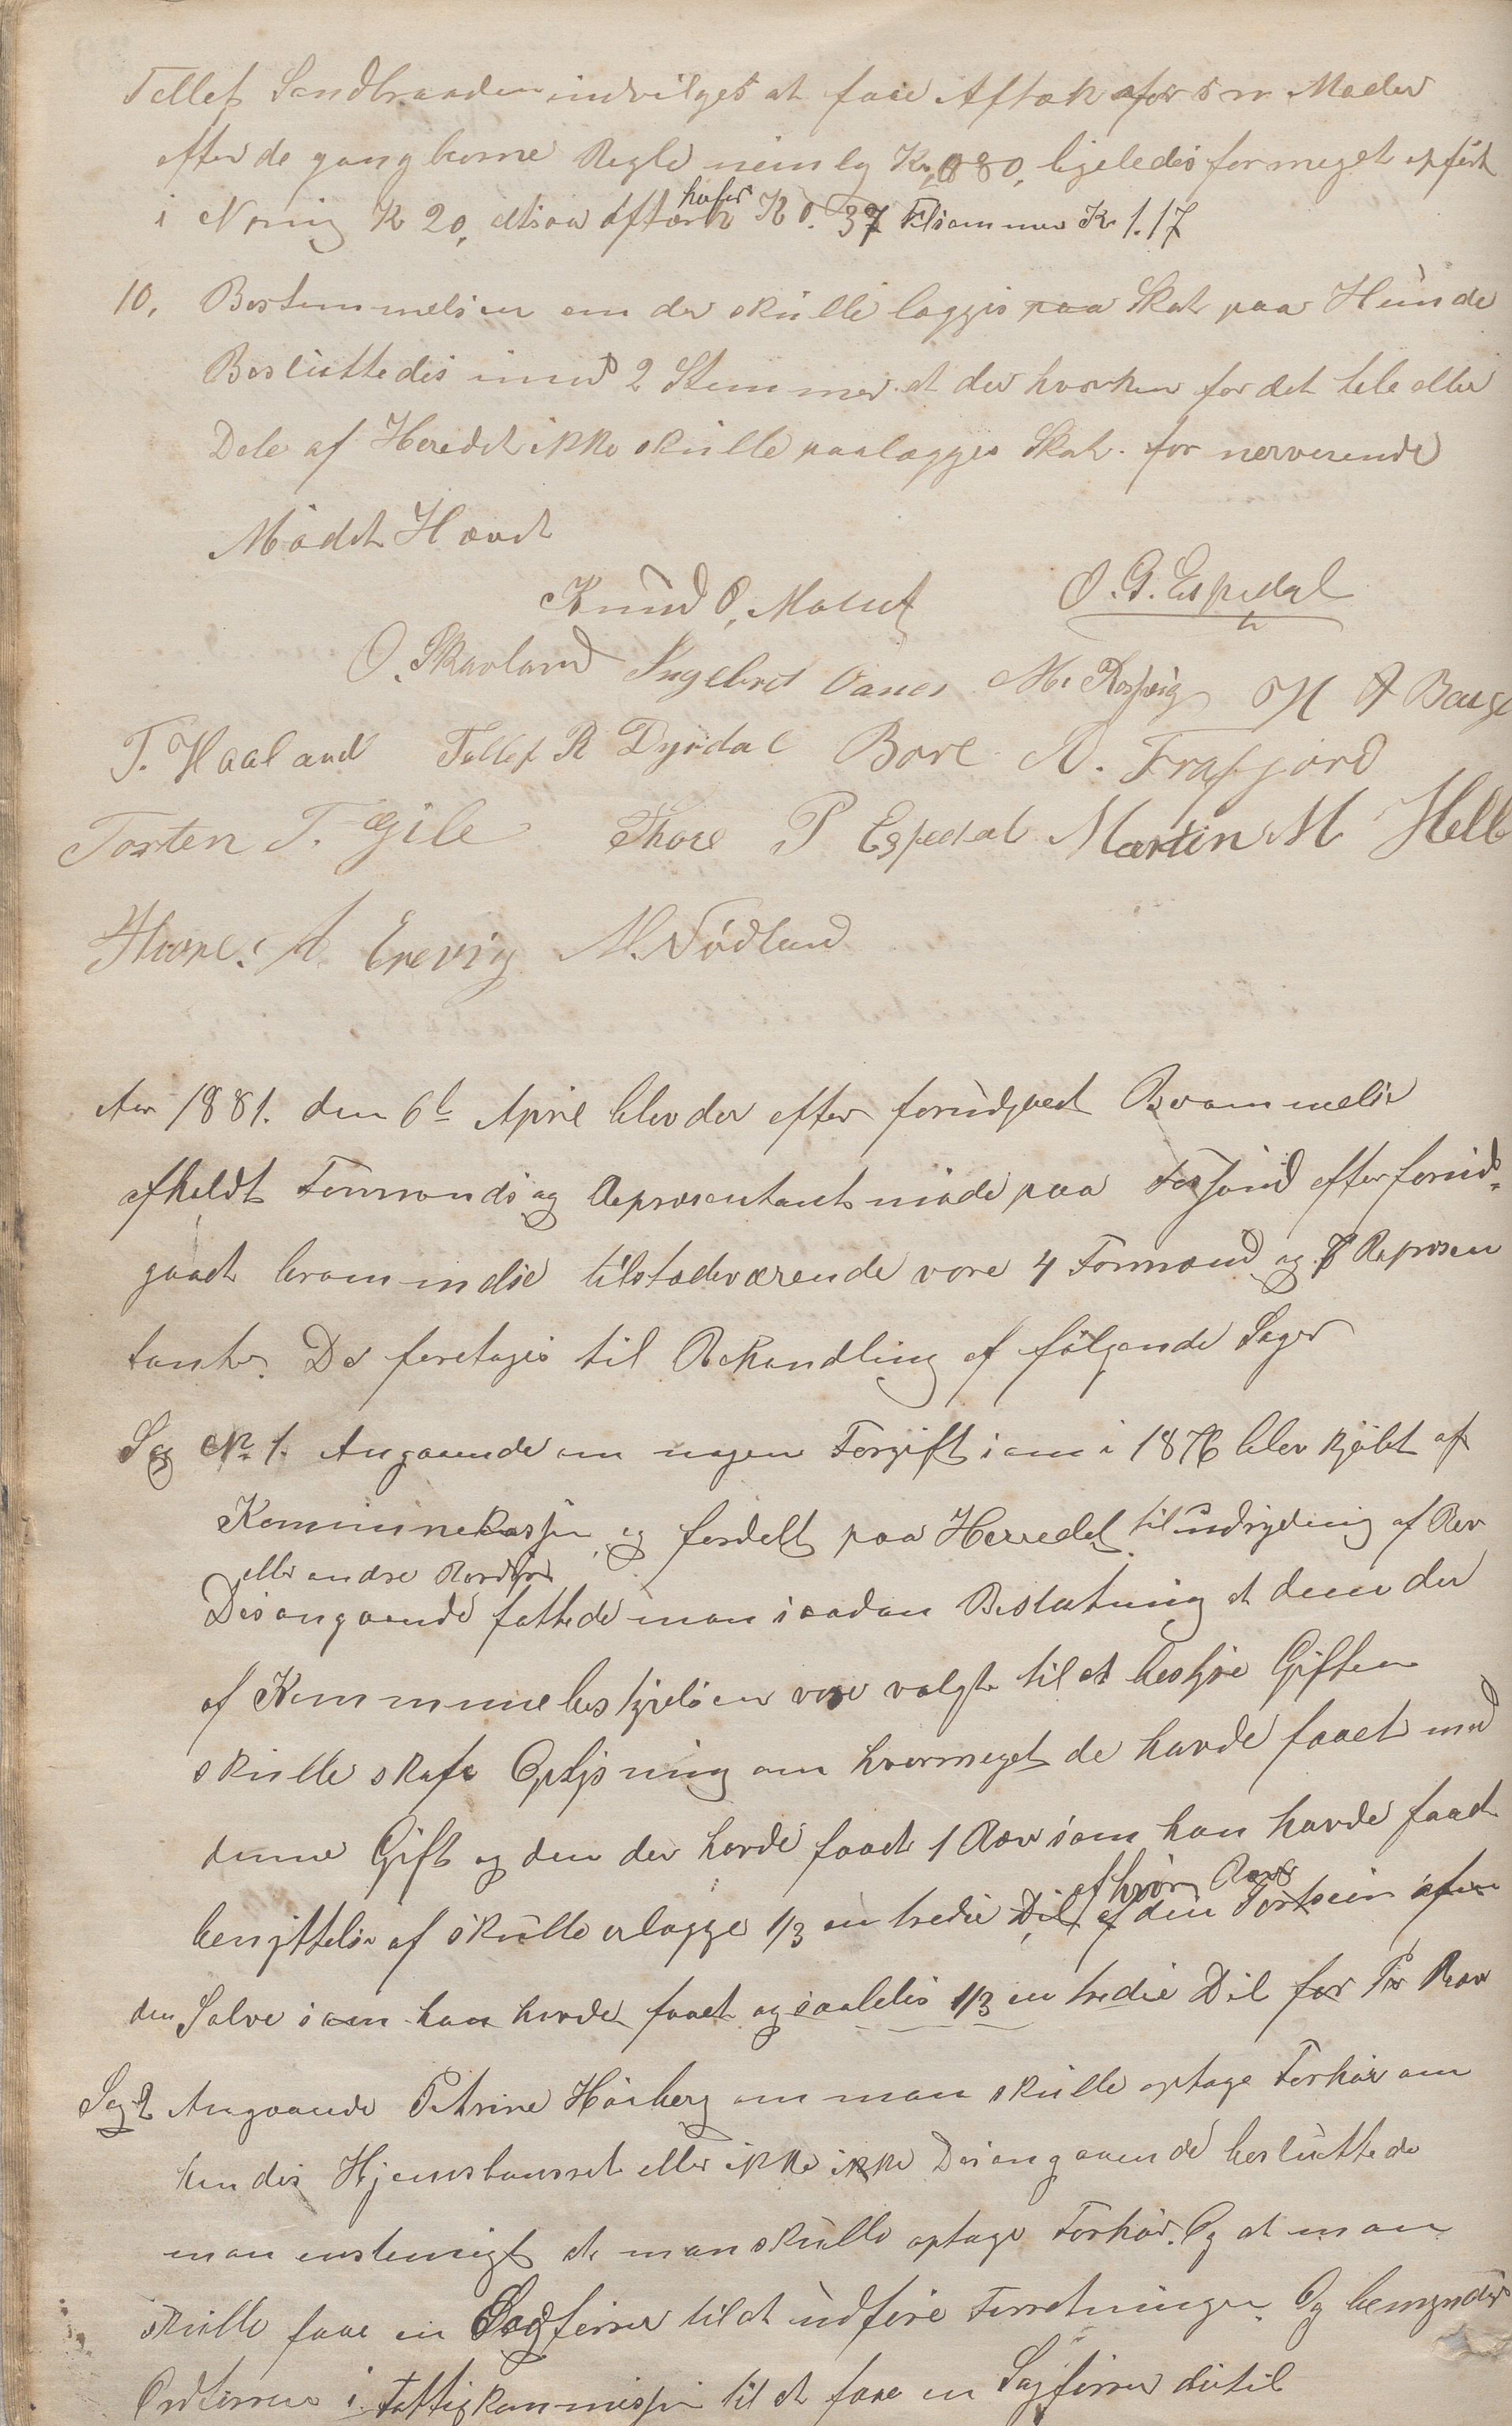 Tellef Sandbraaden indvilges at faae Aftak for Mader
efter de gangbarne Regle nemlig Kr, 080, ligeledes formeget opført
i Næring K 20, altsaa Aftak K 0. 37 tilsammen Kr 1.17
hafer
10, Bestemmelsen om der skulle lægges paa Skat paa Hunde
Besluttedes med 2 Stemmer at der hverken for det hele eller
Dele af Heredet ikke skulle paalægges Skat for nerverende
Mødet Hævet
Knud O, Molaug O. G. Espedal
O. Skavland Ingebret Oanes M. Rossavig H A Bauge
T. Haaland Tollef R Dyrdal Bore A. Frafjord
Torten T. Gile Thore P Espedal Martin M Helle
Thore. A Erevig N. Nødland
Aar 1881. den 6te April blev der efter forudgaaet Berammelse
afholdt Formands og Representantmøde paa Forsand efter forud-
gaaet berammelse tilstedeværende vare 4 Formænd og 8 Represen
tanter. Da foretoges til Behandling af følgende Sager
Sag No 1. Angaaende om nogen Forgift som i 1876 blev kjøbt af
Kommunekassen og fordelt paa Herredet til udrydning af Rev
eller andre Rovdyr
Desangaaende fattede man saadan Beslutning at dem der
af Kommunebestyrelsen vare valgte til at bestyre Giften
skulle skafe Oplysning om hvormeget de havde faaet med
denne Gift og den der havde faaet 1 Ræv som han havde faaet
af hver Ræv
benyttelse af skulle erlægge 1/3 en tredie Del af den
den Salve som han havde faaet og saaledes 1/3 en tredie Del for Pr Ræv
Sag 2 Angaaende Petrine Haaberg om man skulle optage Forhør om
hendes Hjemstavnsret eller ikke ikke Desangaaende besluttede
man enstemigt at man skulle optage Forhør. Og at man
skulle faae en Sagfører til at udføre Forretningen. Og bemyndiges
Ordføreren i Fattigkommissjon til at faae en Sagfører dertil